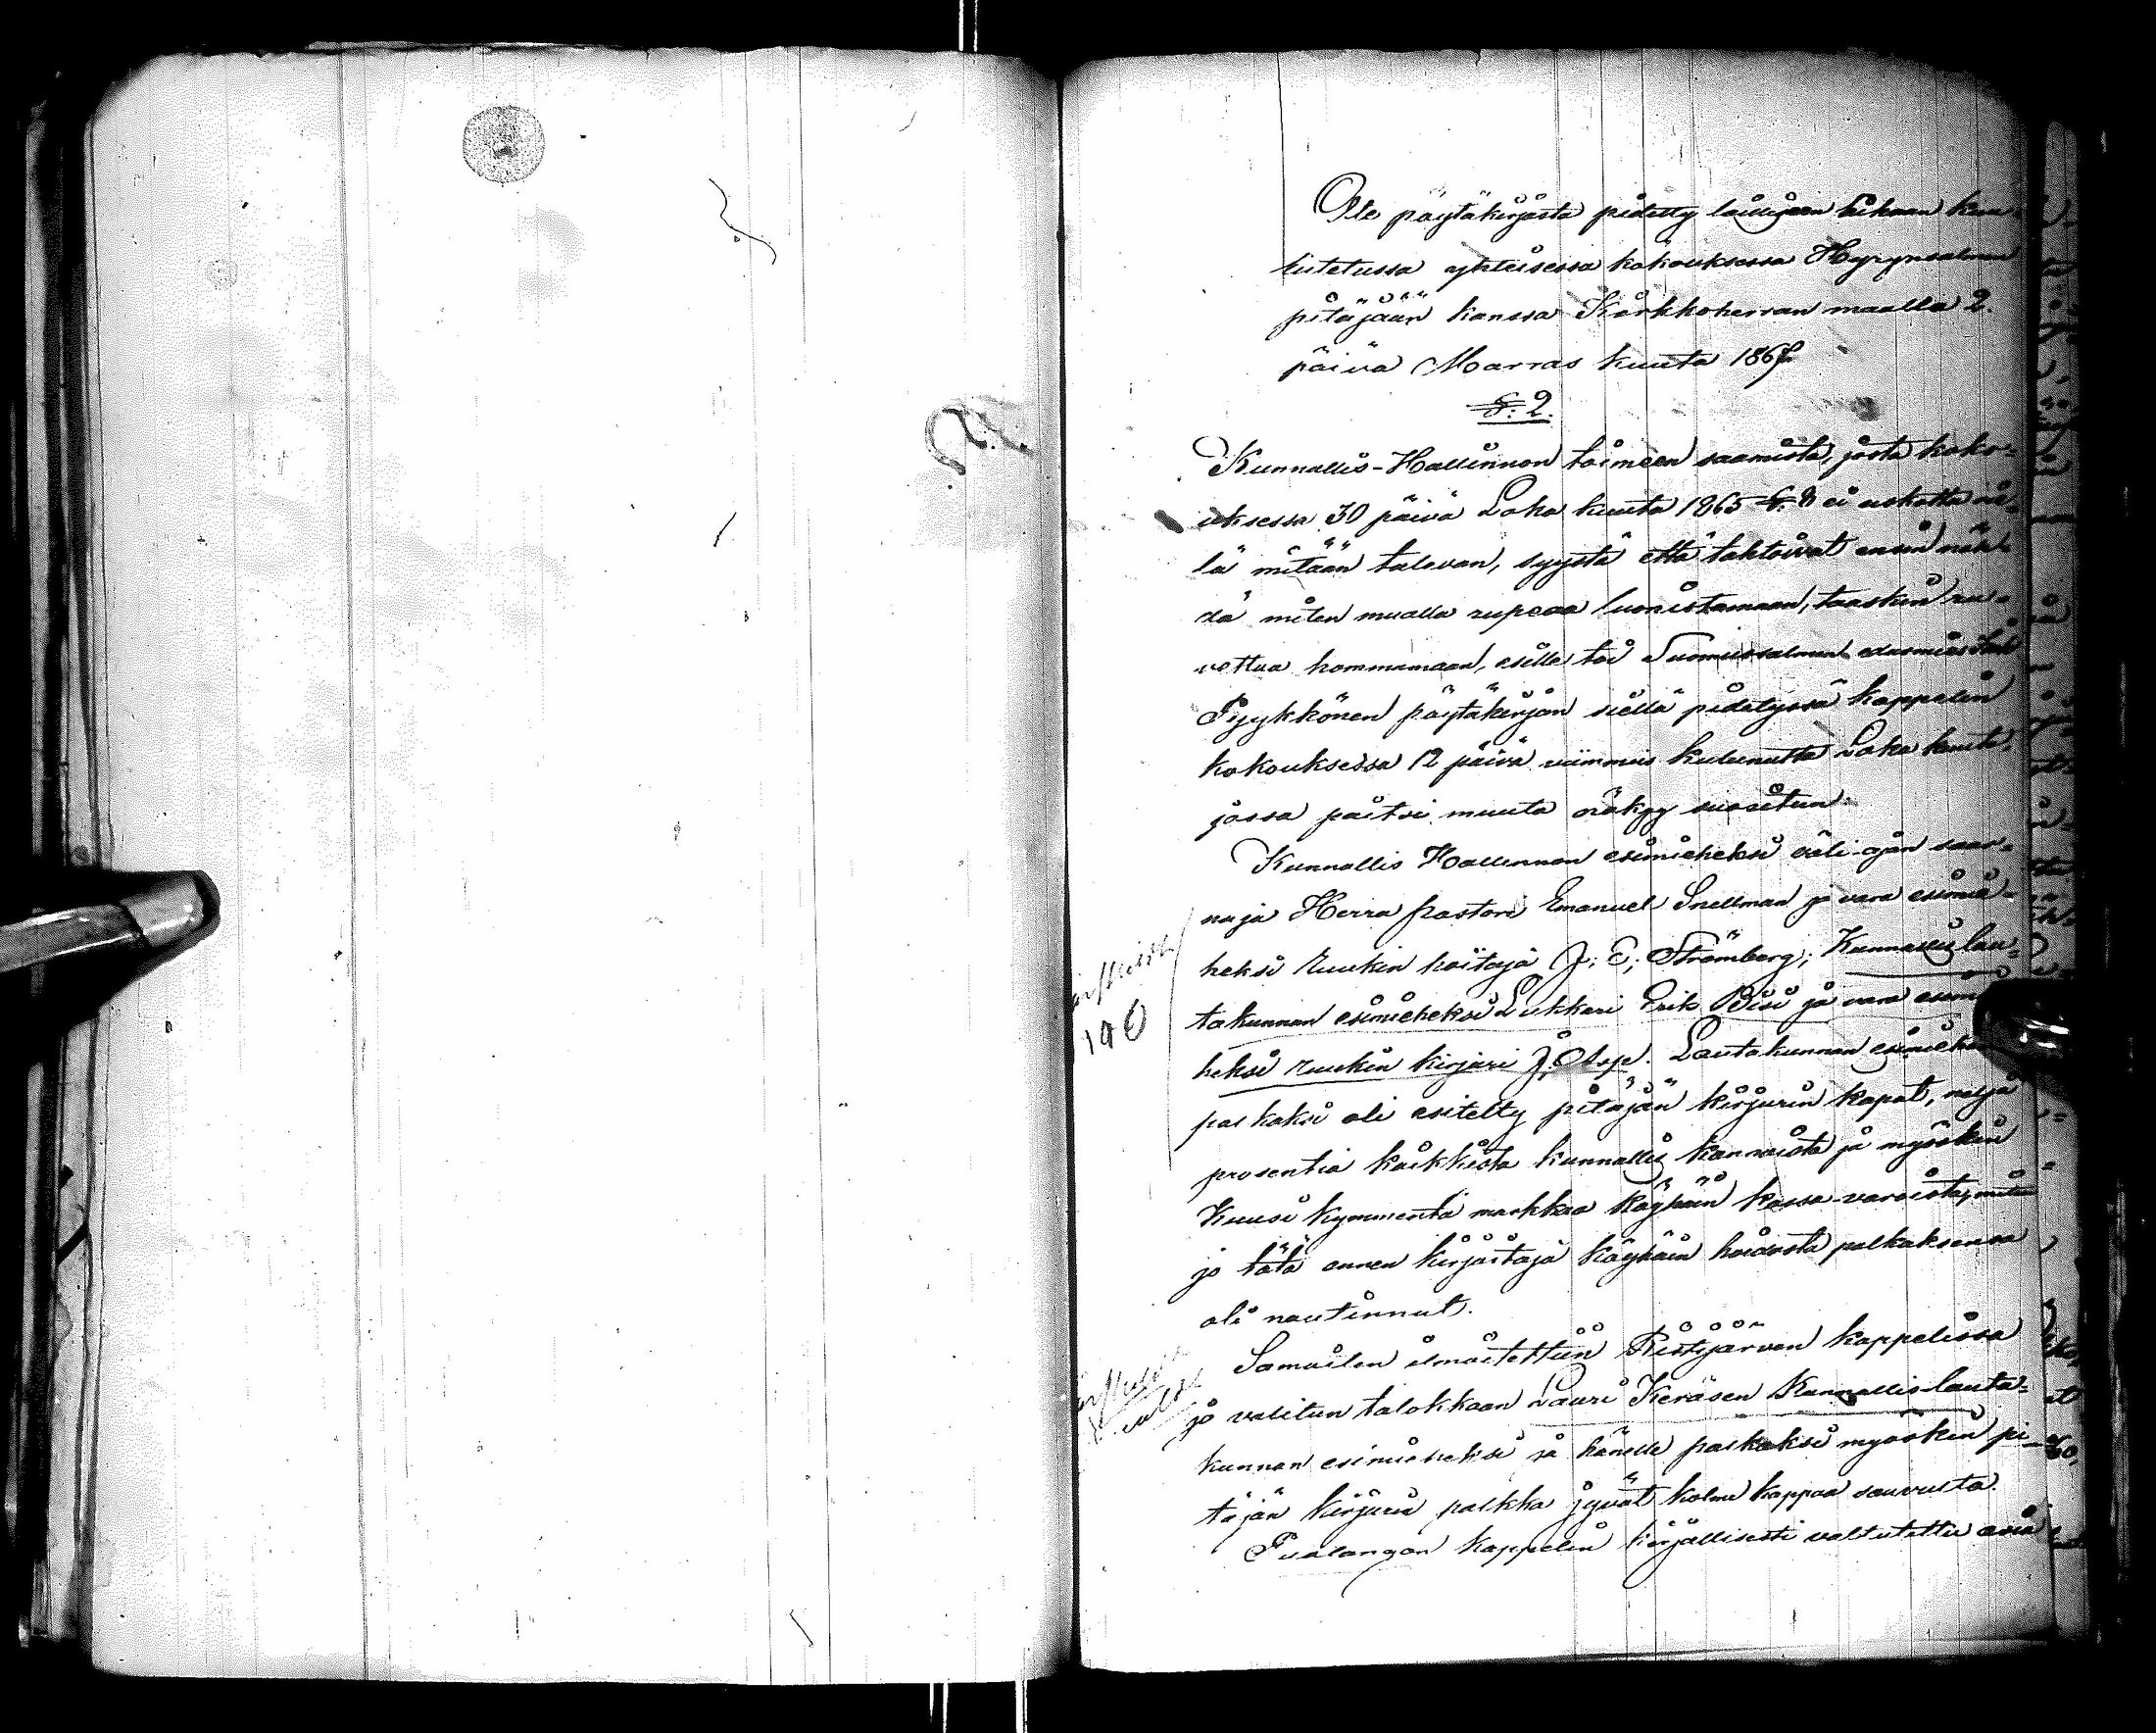 Ote pöytäkirjasta pidetty lailliseen tilaan kuu-
lutetussa yhteisessa kokouksessa Hyrynsalmen
pitäjään kanssa Kirkkoherran maalla 2.
päivä Marras kuuta 1867
§. 2.
Kunnallis-Hallinnon toimeen saamista, josta koko-
uksessa 30 päivä Loka kuuta 1865 §. 8 ei uskottu vie-
lä mitään tulevan, syystä että tahtoivat ensin näh-
dä miten mualla rupeaa luonistamaan, taaskin ru-
vettua hommamaan, esille toi Suomussalmen edusmies
Pyykkönen pöytäkirjan siellä pidetyssä kappelin
kokouksessa 12 päivä viimmis kulunutta Loka kuuta,
jossa paitsi muuta näkyy suositun:
Kunnallis Hallinnon esimieheksi väli-ajan saar-
naja Herra pastori Emanuel Snellman ja vara esimie-
heksi ruukin hoitaja J. E. Strömberg; Kunnallis lau-
takunnan esimieheksi Lukkari Erik Bisi ja vara esimie
heksi ruukin kirjuri J. Alope. Lautakunnan esimiehen
palkaksi oli esitelty pitäjän kirjurin kapat, neljä
prosentia kaikkista kunnallis kannoista ja myöskin
Kuusi kymmentä markkaa köyhäin kassa-varoista, miten
jo tätä ennen kirjoitaja köyhäin hoidosta palkaksensa
oli nautinnut.
Samoilen ilmoitettiin Ristijärven kappelissa
jo valitun talokkaan Lauri Keräsen Kunnallis-lauta-
kunnan esimieheksi ja hänelle palkaksi myöskin pi-
täjän kirjurin palkka jyvät kolme kappaa savulta.
Puolangan kappelin kirjallisesti valtutettu asia